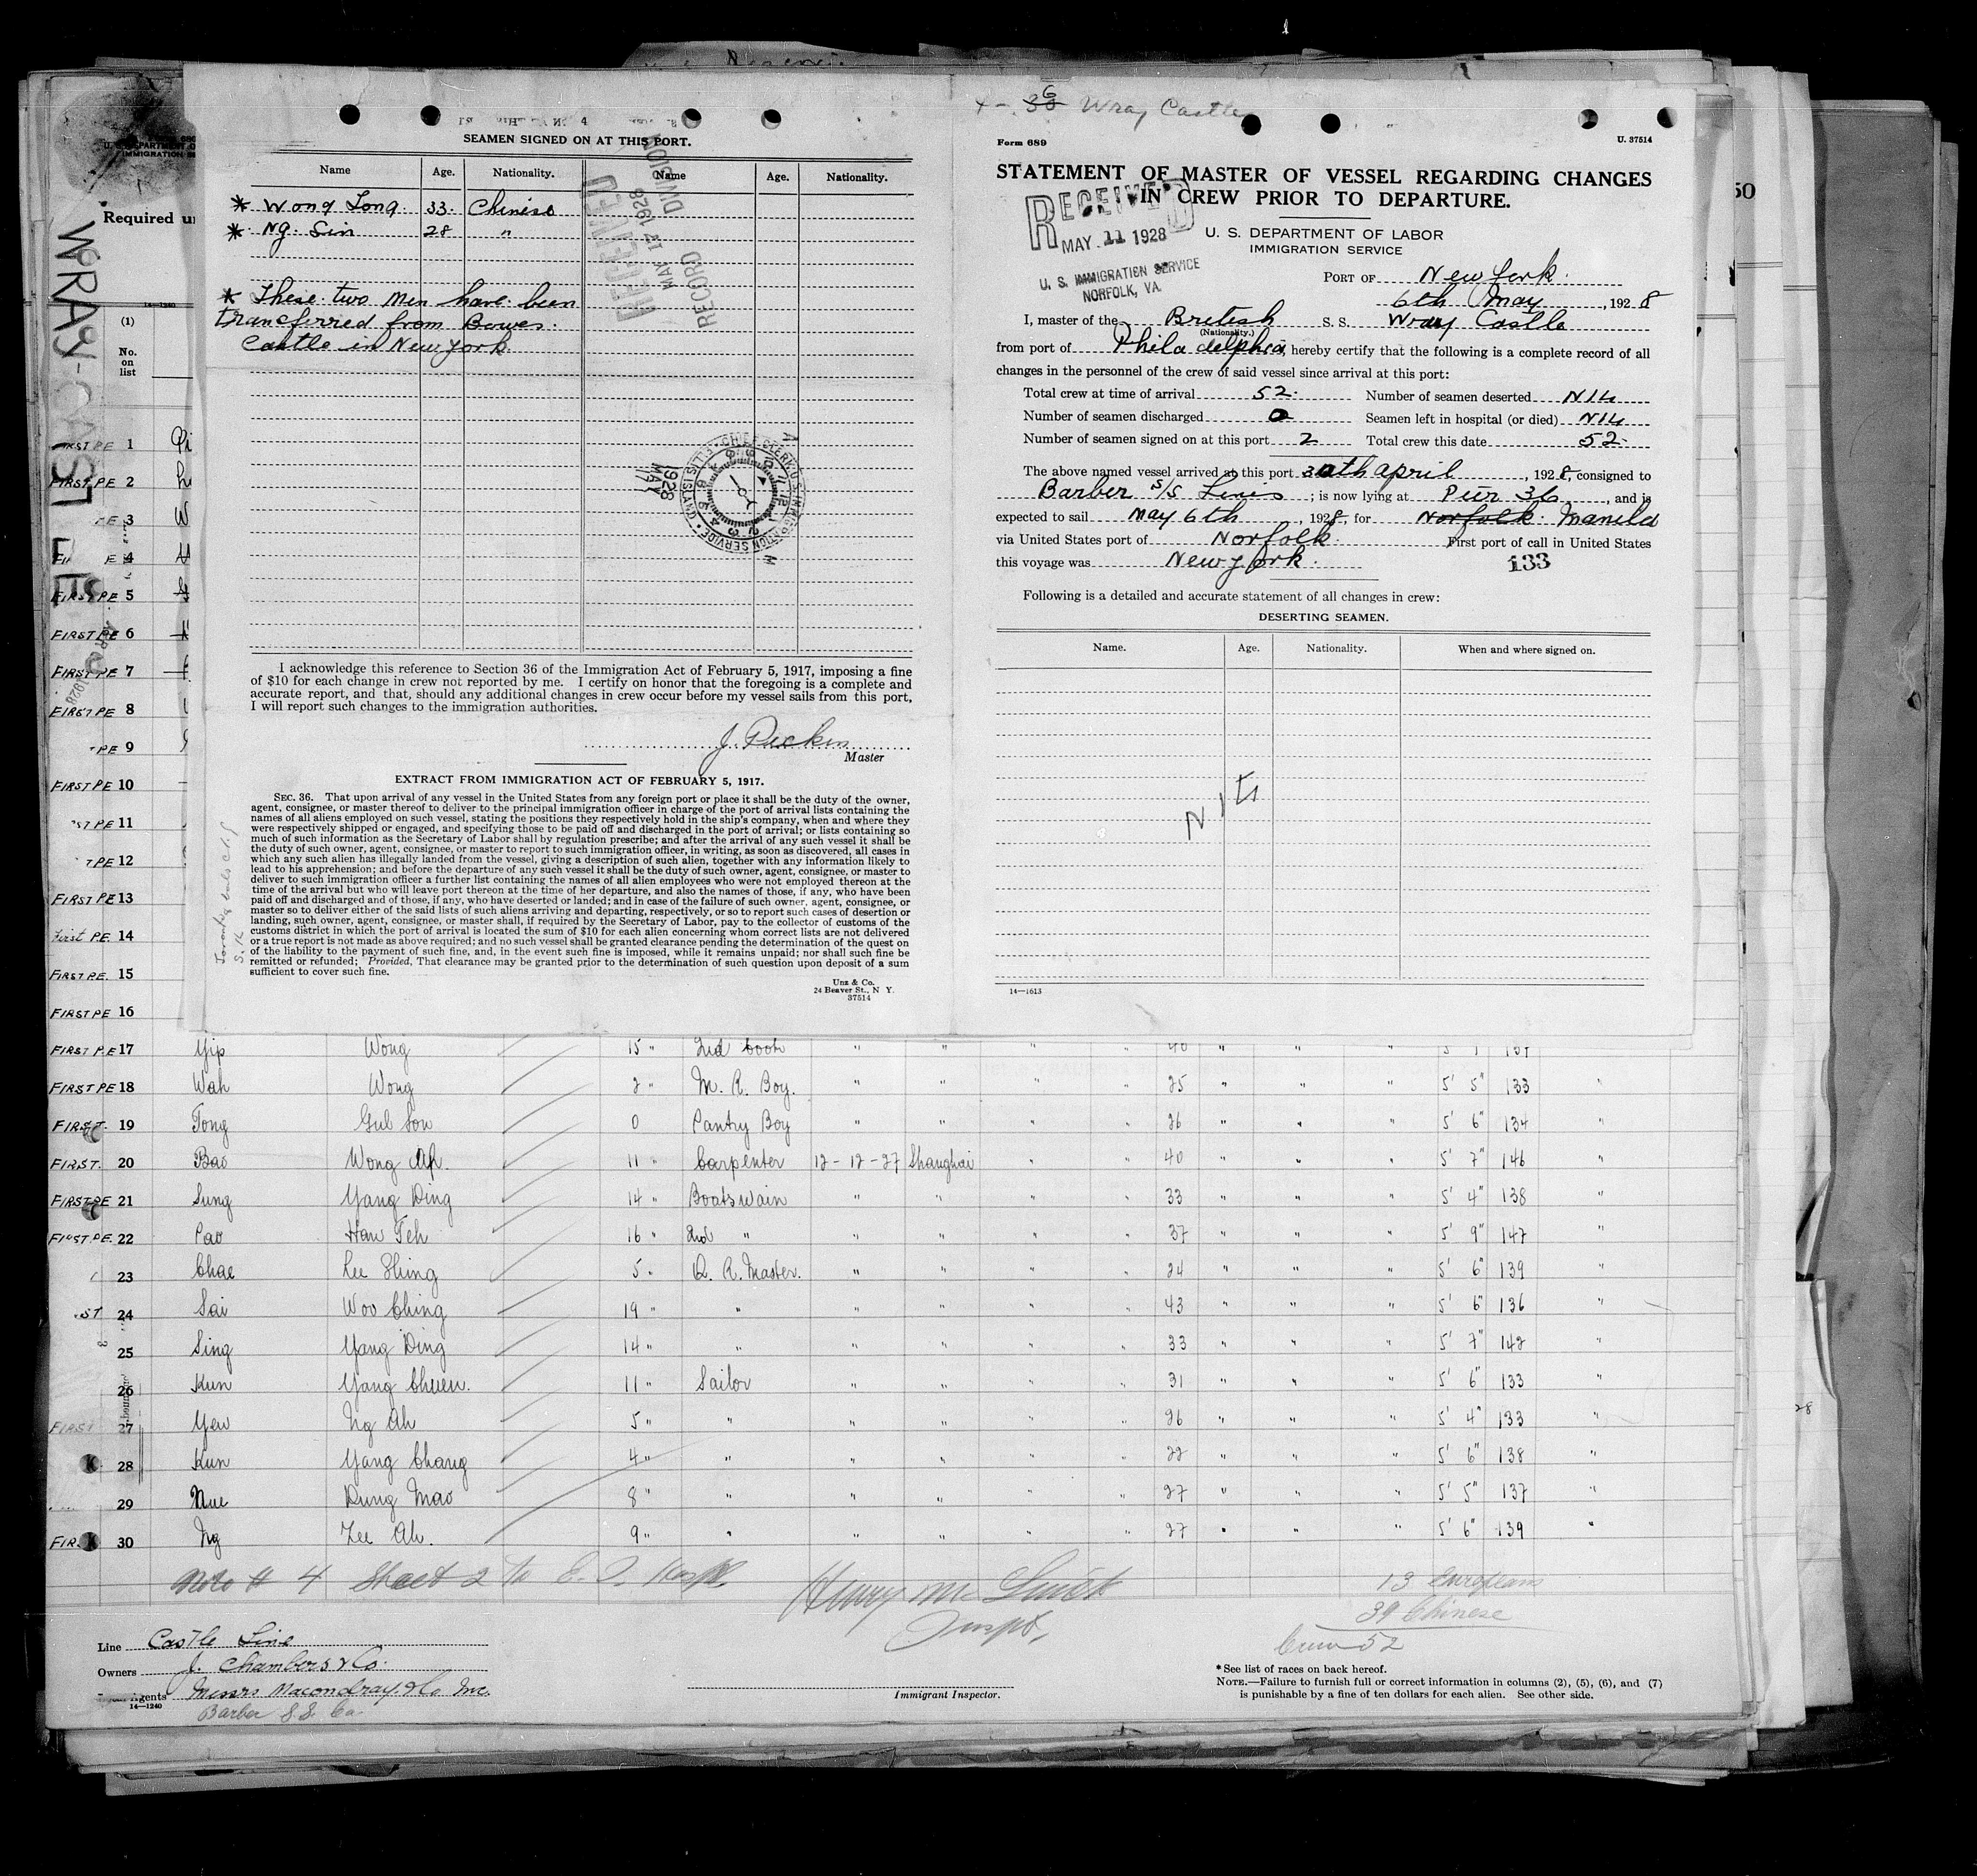 SEAMEN SIGNED ON AT THIS PORT.
Name Age. Nationality. Name Age. Nationality.
* Wong Long. 33. Chinese
* Ng. Sin 28 "
* These two men have been
transferred from Bowes
Castle in New York.
RECEIVED
MAY 17 1928
RECORD DIVISION
CHIEF CLERK U.S. IMMIGRATION SERVICE ELLIS ISLAND
MAY 17 1928
I acknowledge this reference to Section 36 of the Immigration Act of February 5, 1917, imposing a fine
of $10 for each change in crew not reported by me. I certify on honor that the foregoing is a complete and
accurate report, and that, should any additional changes in crew occur before my vessel sails from this port,
I will report such changes to the immigration authorities.
Master
EXTRACT FROM IMMIGRATION ACT OF FEBRUARY 5, 1917.
SEC. 36. That upon arrival of any vessel in the United States from any foreign port or place it shall be the duty of the owner,
agent, consignee, or master thereof to deliver to the principal immigration officer in charge of the port of arrival lists containing the
names of all aliens employed on such vessel, stating the positions they respectively hold in the ship's company, when and where they
were respectively shipped or engaged, and specifying those to be paid off and discharged in the port of arrival; or lists containing so
much of such information as the Secretary of Labor shall by regulation prescribe; and after the arrival of any such vessel it shall be
the duty of such owner, agent, consignee, or master to report to such immigration officer, in writing, as soon as discovered, all cases in
which any such alien has illegally landed from the vessel, giving a description of such alien, together with any information likely to
lead to his apprehension; and before the departure of any such vessel it shall be the duty of such owner, agent, consignee, or master to
deliver to such immigration officer a further list containing the names of all alien employees who were not employed thereon at the
time of the arrival but who will leave port thereon at the time of her departure, and also the names of those, if any, who have been
paid off and discharged and of those, if any, who have deserted or landed; and in case of the failure of such owner, agent, consignee, or
master so to deliver either of the said lists of such aliens arriving and departing, respectively, or so to report such cases of desertion or
landing, such owner, agent, consignee, or master shall, if required by the Secretary of Labor, pay to the collector of customs of the
customs district in which the port of arrival is located the sum of $10 for each alien concerning whom correct lists are not delivered
or a true report is not made as above required; and no such vessel shall be granted clearance pending the determination of the quest on
of the liability to the payment of such fine, and, in the event such fine is imposed, while it remains unpaid; nor shall such fine be
remitted or refunded; Provided, That clearance may be granted prior to the determination of such question upon deposit of a sum
sufficient to cover such fine.
Unz & Co.
24 Beaver St., N Y.
37514
Wray Castle
Form 689 U. 37514
STATEMENT OF MASTER OF VESSEL REGARDING CHANGES
IN CREW PRIOR TO DEPARTURE.
RECEIVED
MAY 11 1928
U. S. IMMIGRATION SERVICE
NORFOLK, VA.
U. S. DEPARTMENT OF LABOR
IMMIGRATION SERVICE
PORT OF New York.
6th May, 1928
I, master of the British S. S. Wray Castle
(Nationality.)
from port of Philadelphia, hereby certify that the following is a complete record of all
changes in the personnel of the crew of said vessel since arrival at this port:
Total crew at time of arrival 52. Number of seamen deserted NIL
Number of seamen discharged 0 Seamen left in hospital (or died) NIL
Number of seamen signed on at this port 2 Total crew this date 52.
The above named vessel arrived at this port 30th April, 1928, consigned to
Barber S/S Lines; is now lying at Pier 36, and is
expected to sail May 6th, 1928, for Norfolk. Manila
via United States port of Norfolk First port of call in United States
this voyage was New York.
133
Following is a detailed and accurate statement of all changes in crew:
DESERTING SEAMEN.
Name. Age. Nationality. When and where signed on.
NIL
14—1613
WRAY-CASTLE
Required u
14—1240
(1)
No.
on
list
FIRST PE 1
FIRST PE 2
PE 3
4
FIRST PE 5
FIRST PE 6
FIRST PE 7
FIRST PE 8
PE 9
FIRST PE 10
ST PE 11
PE 12
FIRST PE 13
First PE. 14
FIRST PE. 15
FIRST PE 16
FIRST P.E 17 Yip Wong 15 " 2nd Cook " " " " 40 " " " 137
FIRST PE 18 Wah Wong 2 " M. R. Boy. " " " " 25 " " " 5' 5" 133 "
FIRST. 19 Tong Gub Son 0 Pantry Boy " " " " 26 " " " 5' 6" 134 "
FIRST. 20 Bao Wong Ah. 11 " Carpenter 12-12-27 Shanghai " " 40 " " " 5' 7" 146 "
FIRST PE 21 Sung Yang Ding 14 " Boatswain " " " " 33 " " " 5' 4" 138 "
FIRST PE. 22 Pao Han Teh 16 " 2nd " " " " " 37 " " " 5' 9" 147 "
23 Chae Lee Shing 5 " Q. R. Master. " " " " 24 " " " 5' 6" 139 "
ST 24 Sai Woo Ching 19 " " " " " " 43 " " " 5' 6" 136 "
25 Sing Yang Ding 14 " " " " " " 33 " " " 5' 7" 142 "
26 Kun Yang Chuen. 11 " Sailor " " " " 31 " " " 5' 6" 133 "
FIRST 27 Yew Ng Ah 5 " " " " " " 26 " " " 5' 4" 133 "
28 Kun Yang Chang 4 " " " " " " 22 " " " 5' 6" 138 "
29 Nue Dung Mao 8 " " " " " " 27 " " " 5' 5" 137 "
FIR. 30 Ng Zee Ah. 9 " " " " " " 27 " " " 5' 6" 139 "
Note # 4 Sheet 2 To E. I. Hosp.
Inspt.
13 Europeans
39 Chinese
Crew 52
Line Castle Line
Owners J. Chambers & Co.
Agents Messrs Macondray & Co Inc.
14—1240
Barber S.S. Co.
Immigrant Inspector.
* See list of races on back hereof.
NOTE.—Failure to furnish full or correct information in columns (2), (5), (6), and (7)
is punishable by a fine of ten dollars for each alien. See other side.